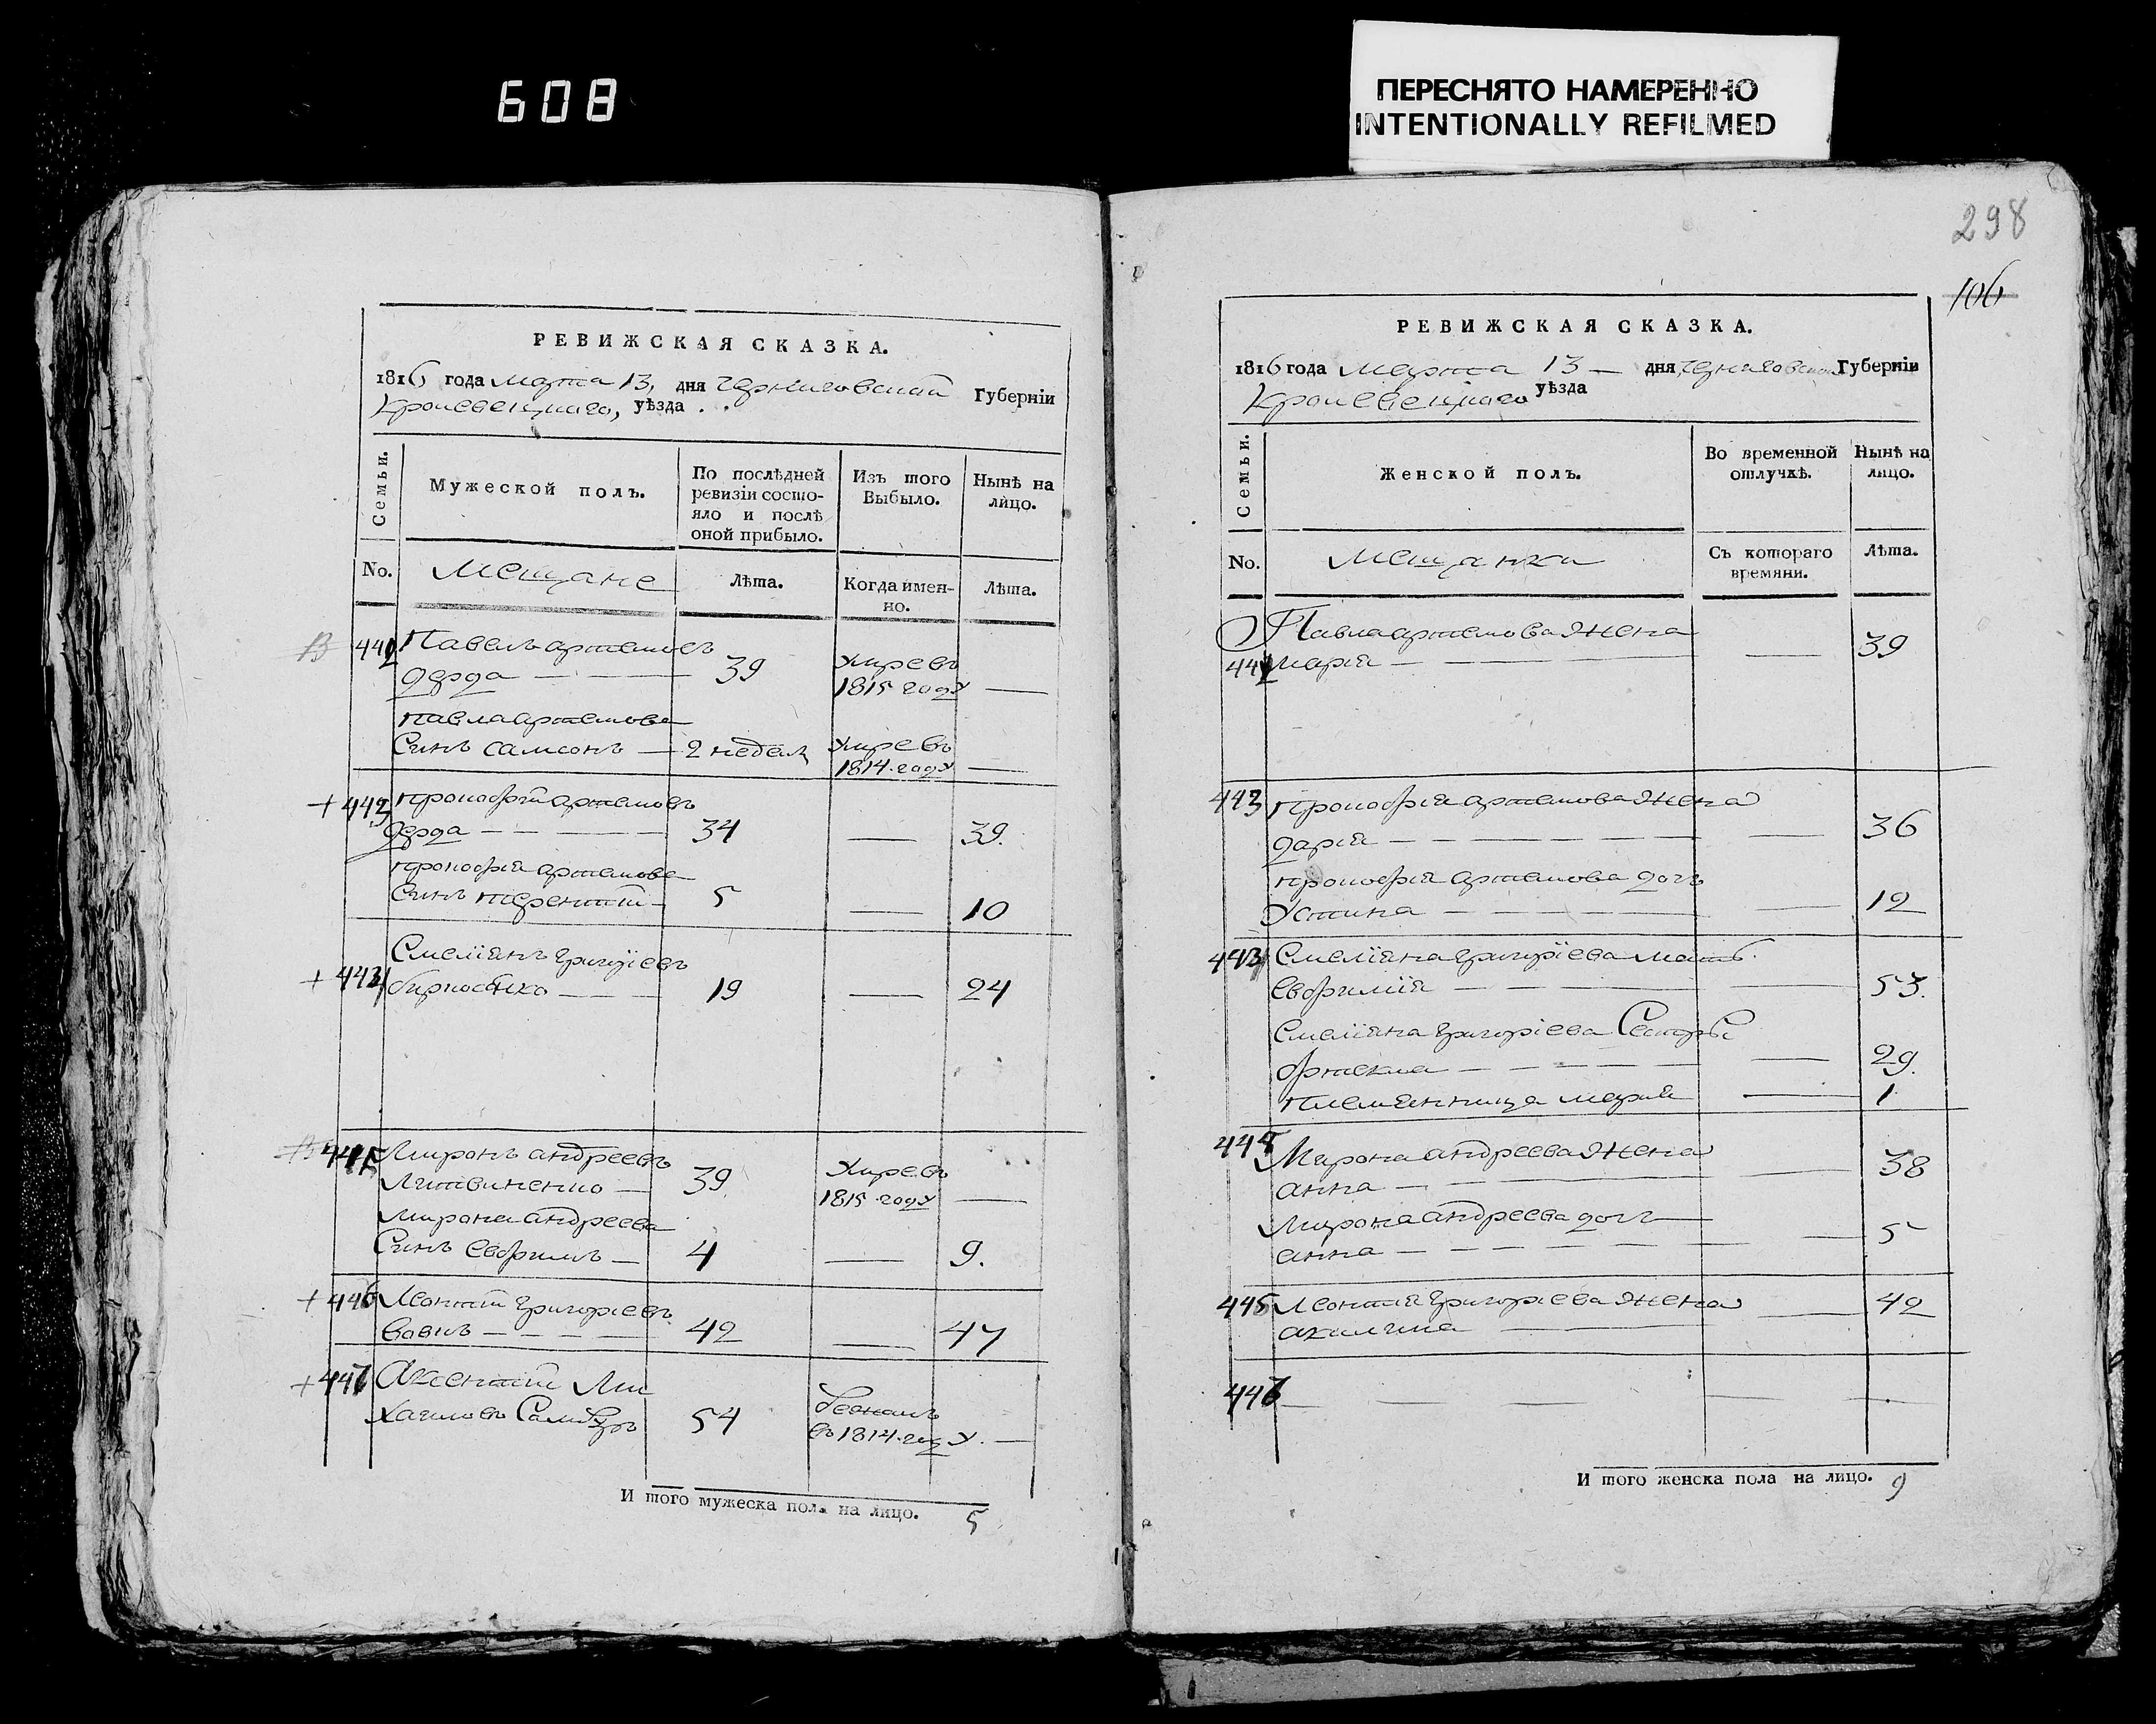 608
ПЕРЕСНЯТО НАМЕРЕННО
INTENTIONALLY REFILMED
РЕВИЖСКАЯ СКАЗКА.
1816 года марта 13, дня Черниговской Губерніи
Кролевецкаго, уѣзда
Семьи.
Мужеской полъ.
По послѣдней
ревизіи состо-
яло и послѣ
оной прибыло.
Изъ того
Выбыло.
Нынѣ на
лицо.
No.
Мещане
Лѣта.
Когда имен-
но.
Лѣта.
442 Павелъ артемовъ
дерда 39 умре въ
1815 году
павла артемова
Синъ самсонъ 2 недел умре въ
1814 году
+ 443 прокофій артемовъ
дерда 34 39.
прокофія артемова
Синъ терентій 5 10
Емеліянъ григоріевъ
+ 19 24
Миронъ андреевъ
Литвиненко 39 Умре въ
1815 году
Мирона андреева
Синъ Евфимъ 4 9.
+ 446 Леонтій григоріевъ
42 47
+ 447 Аксентій Ми
хаиловъ 54
въ 1814 году.
И того мужеска пола на лицо. 5
298
106
РЕВИЖСКАЯ СКАЗКА.
1816 года марта 13 дня, Черниговской Губерніи
Кролевецкаго уѣзда
Семьи.
Женской полъ.
Во временной
отлучкѣ.
Нынѣ на
лицо.
No.
Мещанки
Съ котораго
времяни.
Лѣта.
Павла артемова жена
марія 39
443 прокофія артемова жена
дарія 36
прокофія артемова дочъ
Устина 12
Емеліяна григоріева мать
Евфимія 53.
Емеліяна григоріева Сестра
29.
племянница марія 1
Мирона андреева жена
анна 38
Мирона андреева дочъ
анна 5
445 Леонтія григоріева жена
акилина 42
И того женска пола на лицо. 9